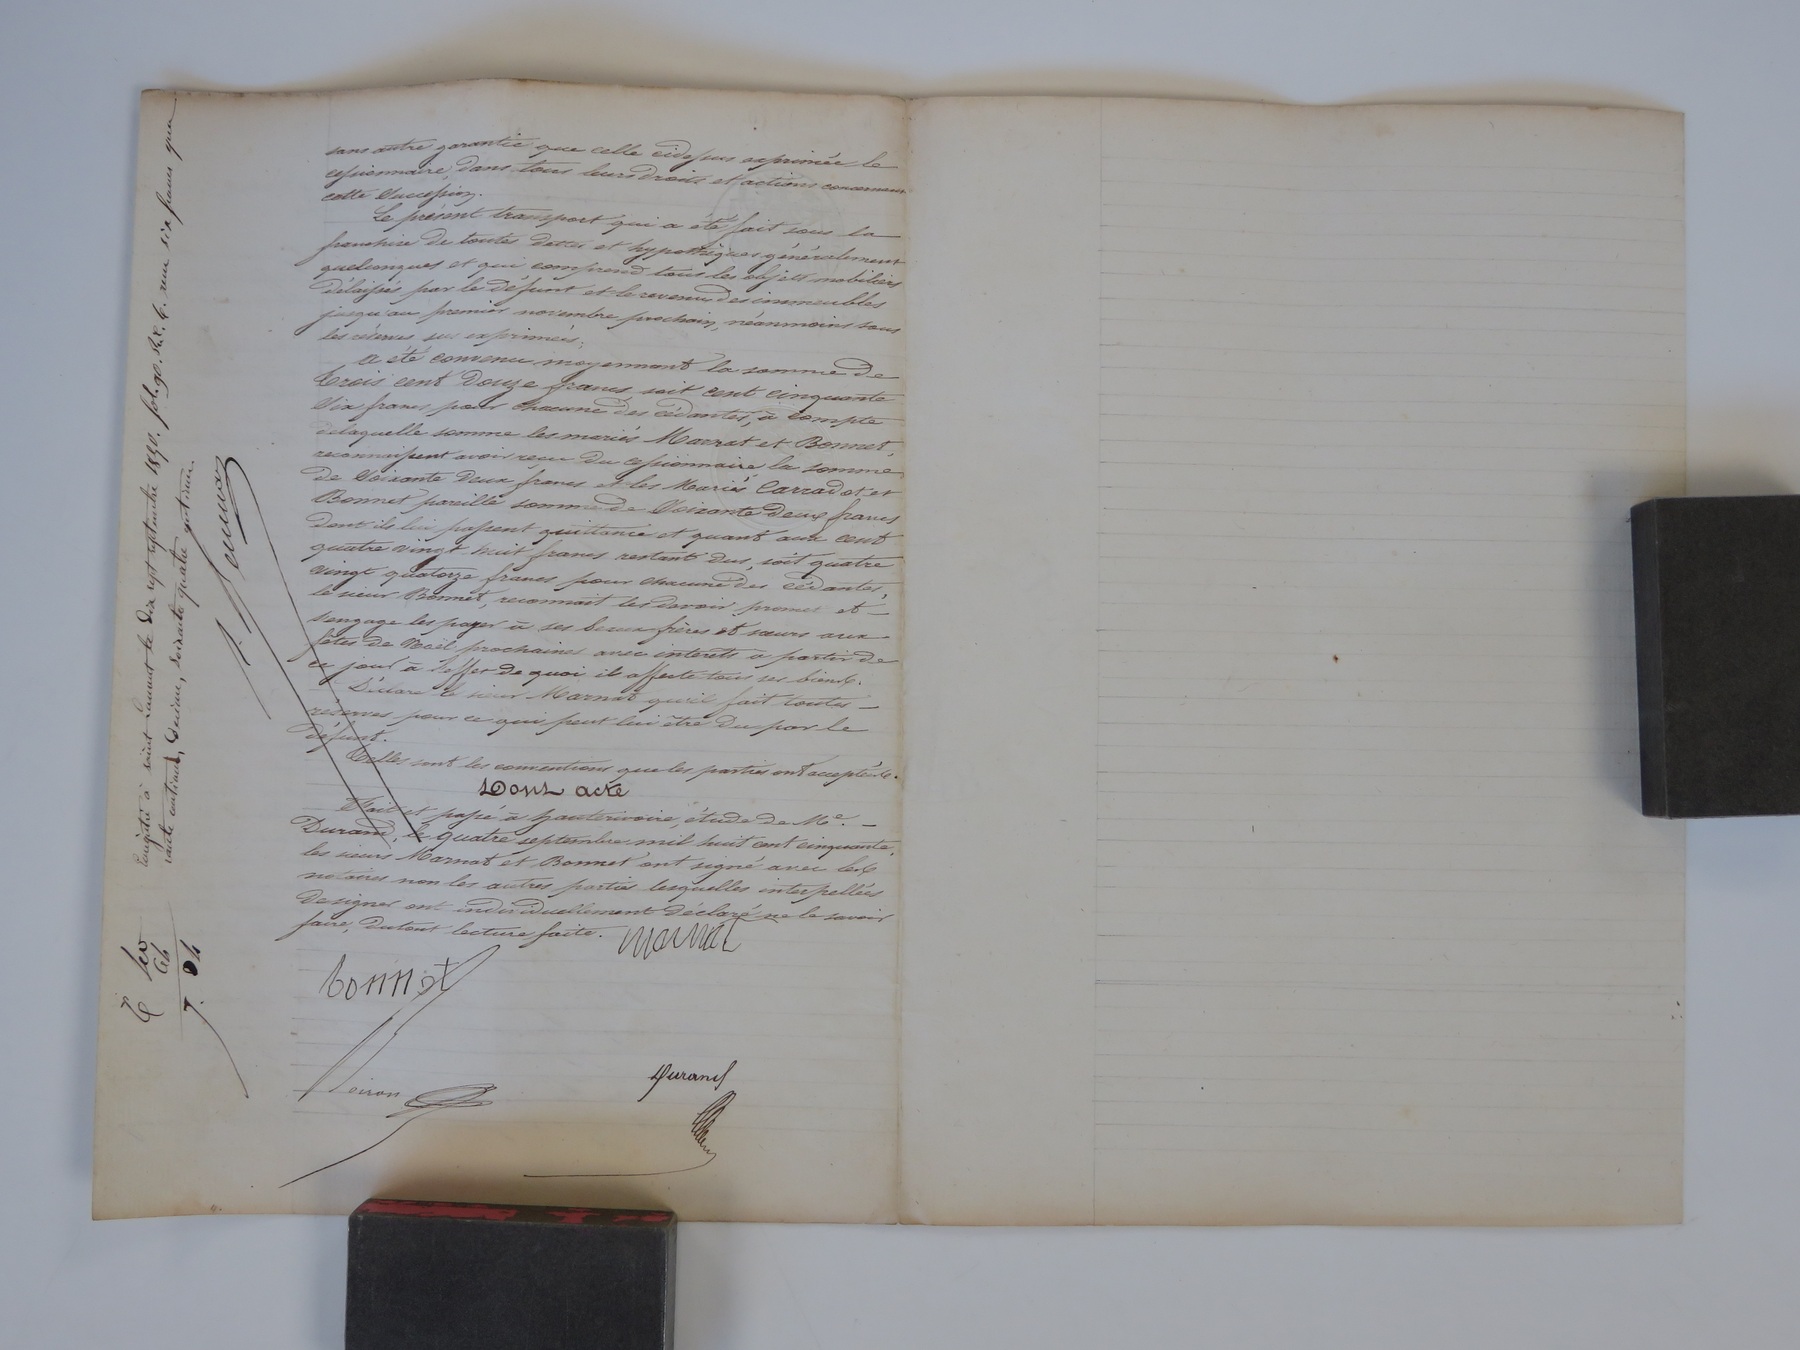 sans autre garantie que celle cidessus exprimée le
cessionnaire, dans tous leurs droits et actions concernant
cette Succession.
Le présent transport qui a été fait sous la
franchise de toutes dettes et hypothèques généralement
quelconques et qui comprend tous les objets mobiliers
délaissés par le défunt et le revenu des immeubles
jusqu'au premier novembre prochain, néanmoins sous
les réserves sus exprimées;
a été convenu moyennant la somme de
trois cent Douze francs, soit cent cinquante
Six francs pour chacune des cédantes, à compte
delaquelle somme les mariés Marnat et Bonnet,
reconnaissent avoir reçu du cessionnaire la somme
de Soixante Deux francs et les Mariés Carradot et
Bonnet pareille somme de Soixante Deux francs
dont ils lui passent quittance et quant aux cent
quatre vingt huit francs restant dus, soit quatre
vingt quatorze francs pour chacune des cédantes,
le sieur Bonnet, reconnait les devoir promet et
s'engage les payer à ses beaux frères et sœurs aux
fêtes de Noël prochaines avec intérêts à partir de
ce jour à l'effet de quoi il affecte tous ses biens.
Déclare le sieur Marnat qu'il fait toutes
réserves pour ce qui peut lui être du par le
défunt.
Telles sont les conventions que les parties ont acceptées.
Dont acte
Fait et passé à hauterivoire, étude de Me.
Durand, le quatre septembre mil huit cent cinquante,
les sieurs Marnat et Bonnet ont signé avec les
notaires non les autres parties lesquelles interpellées
de signer ont individuellement déclaré ne le savoir
faire, du tout lecture faite.
Marnat
bonnet
Durand
Enregistré à saint Laurent le dix sept septembre 1850. fol. 90. R.c. 6. reçu six francs
centimes, Décime, soixante quatre centimes.
7. 04